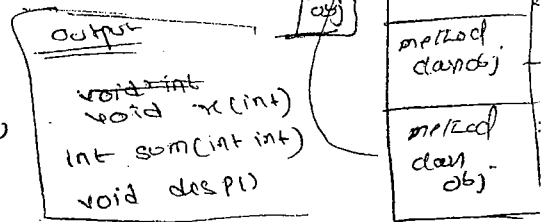 output
obj
void int
void x(int)
int sum(int int)
void disp()
method
class obj
method
class
obj